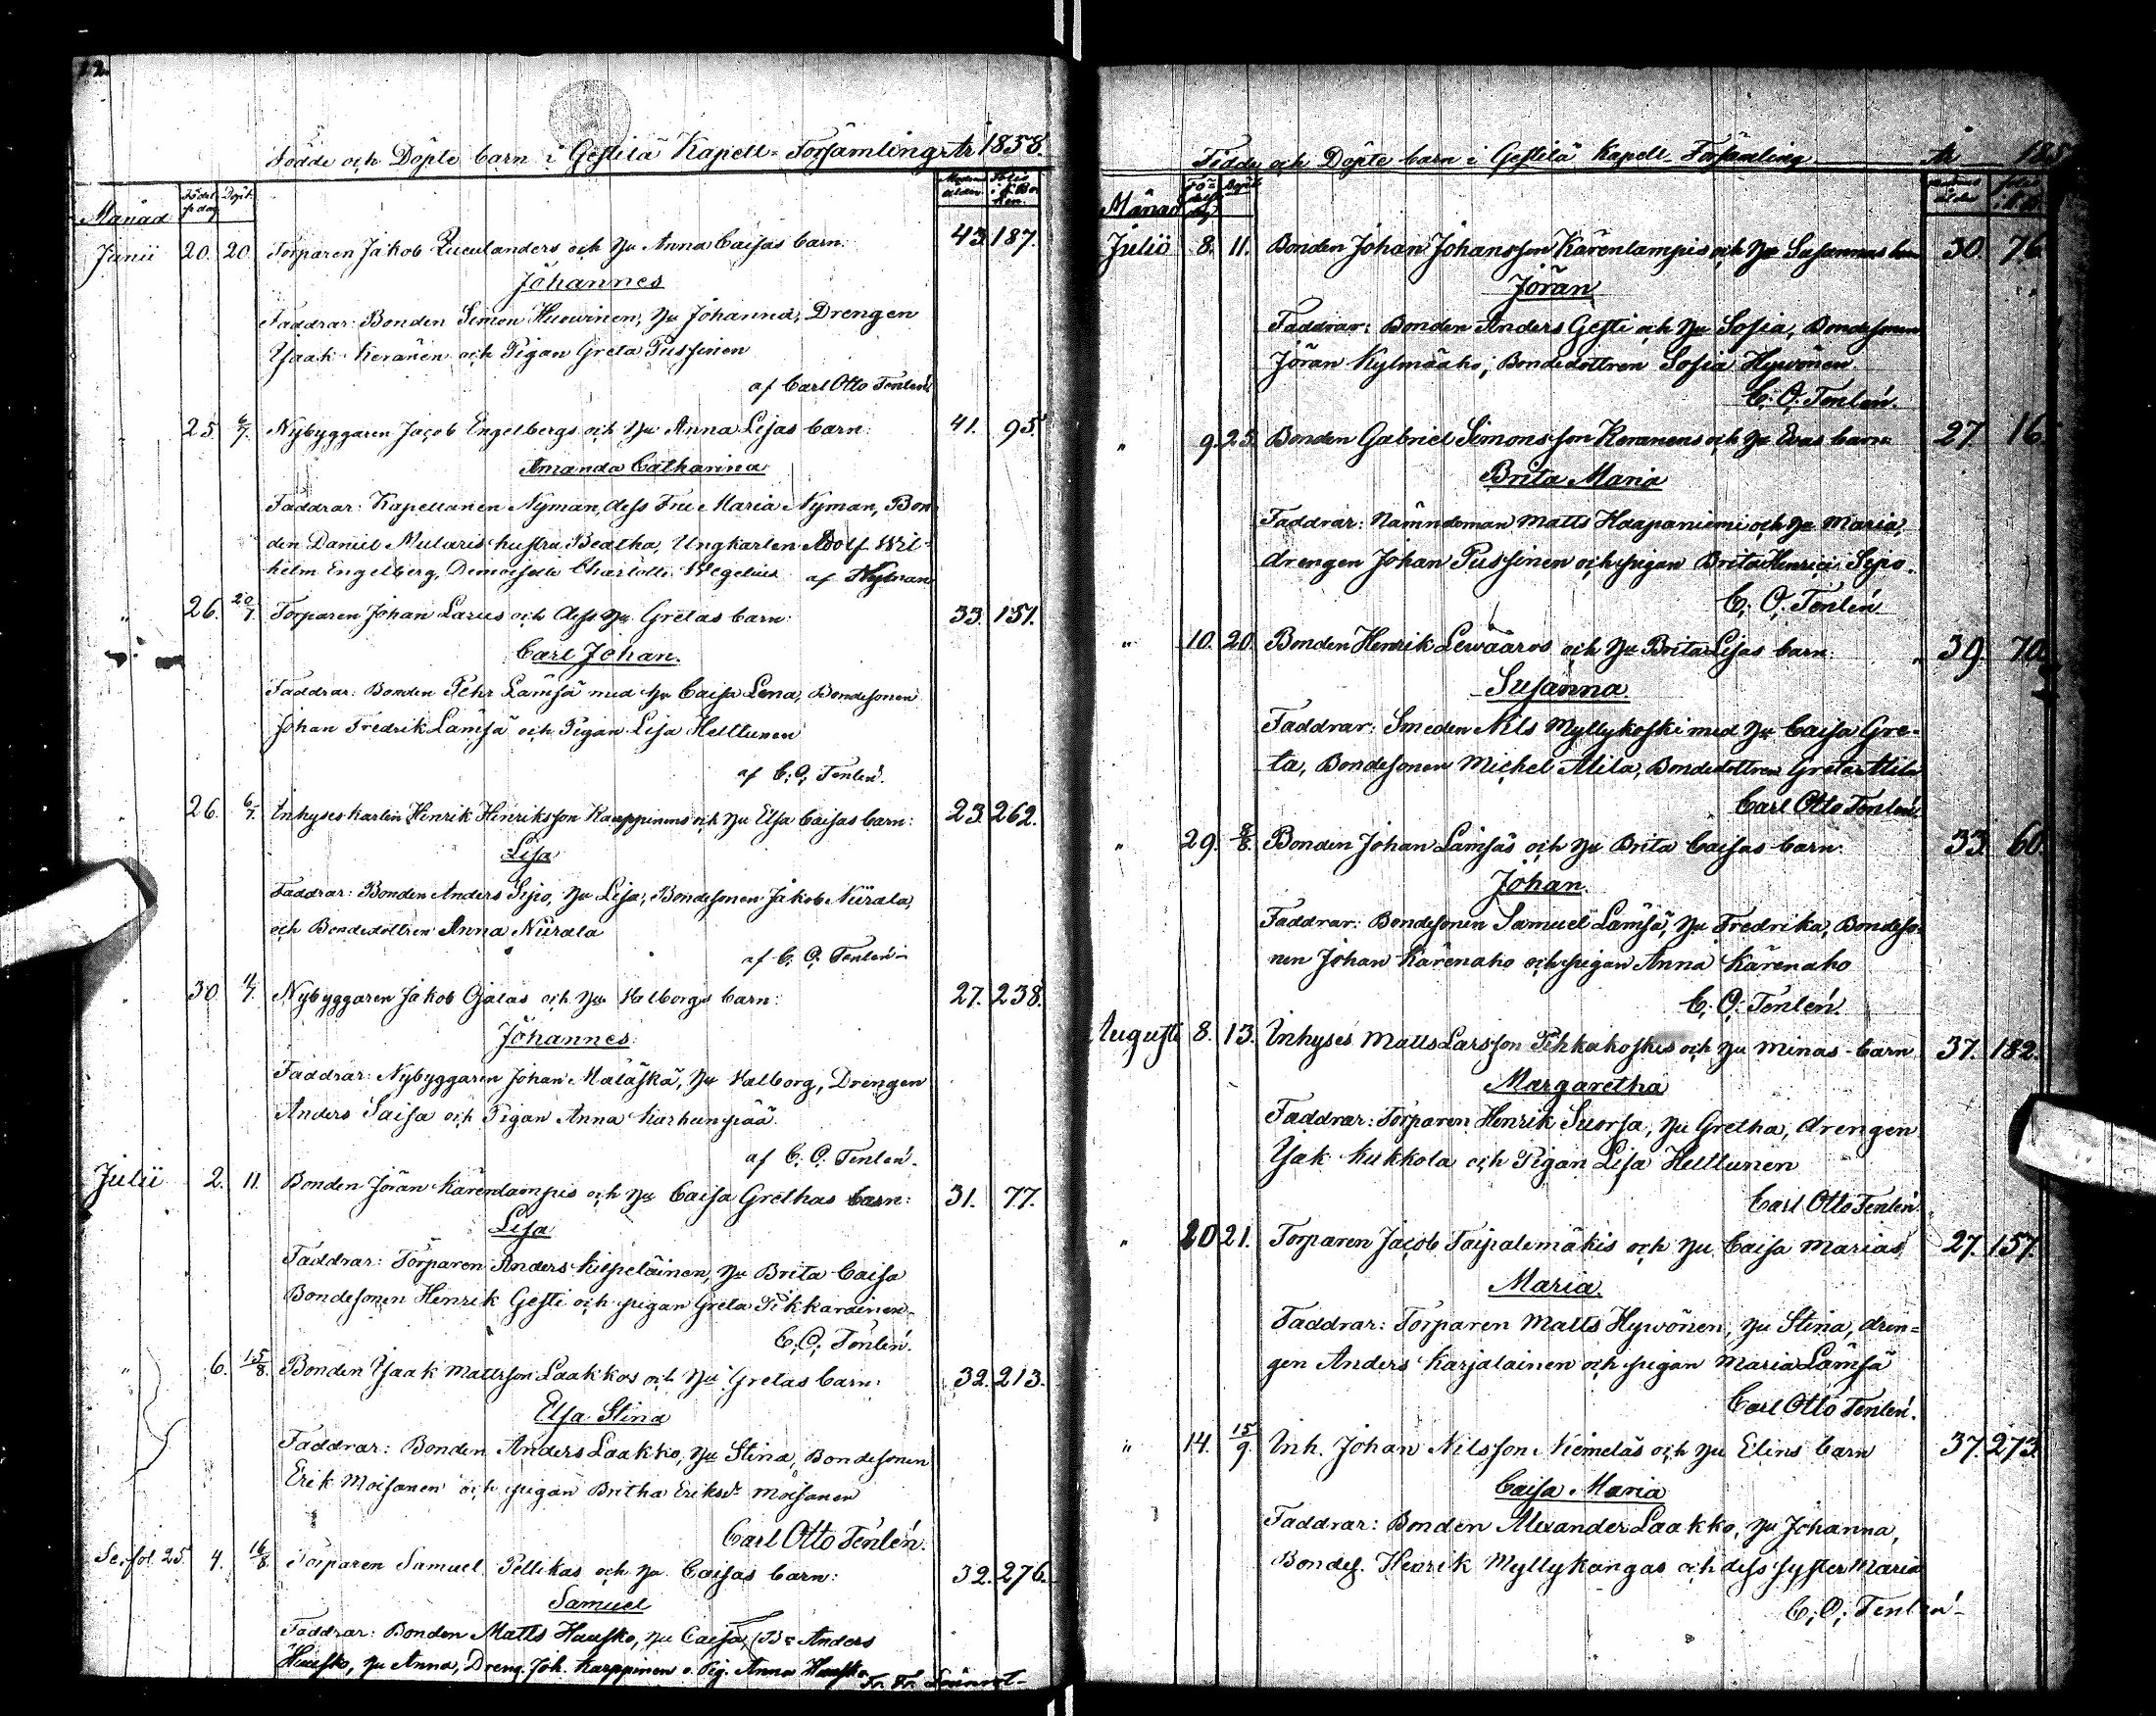 22.
Födde och Döpte barn i Gestilä Kapell-Församling År 1858.
Månad Födel-sedag Döpt. Modrens ålder. Folio i K. Boken.
Junii 20. 20. Torparen Jakob Luculanders och Hu Anna Caisas barn: 43. 187.
Johannes
Faddrar: Bonden Simon Huovinen, Hu Johanna, Drengen
Isaak Keränen och Pigan Greta Pussinen
af Carl Otto Tenlén
" 25. 6/7. Nybyggaren Jacob Engelbergs och Hu Anna Lisas barn: 41. 95.
Amanda Catharina
Faddrar: Kapellanen Nyman, dess Fru Maria Nyman, Bon-
den Daniel Mularis hustru Beatha, Ungkarlen Adolf Wil-
helm Engelberg, Demoiselle Charlotte Wegelius af Nyman
" 26. 20/7. Torparen Johan Larus och dess Hu Gretas barn: 33. 151.
Carl Johan.
Faddrar: Bonden Pehr Lämsä med Hu Caisa Lena, Bondesonen
Johan Fredrik Lämsä och Pigan Lisa Helttunen
af C. O. Tenlén.
" 26. 6/7. Inhyseskarlen Henrik Henriksson Karppinens och Hu Elsa Caisas barn: 23. 262.
Lisa
Faddrar: Bonden Anders Sipo, Hu Lisa, Bondesonen Jakob Niirala,
och Bondedottren Anna Niirala
af C. O. Tenlén
" 30. 4/7. Nybyggaren Jakob Ojalas och Hu Walborgs barn: 27. 238.
Johannes
Faddrar: Nybyggaren Johan Maläskä, Hu Walborg, Drengen
Anders Saisa och Pigan Anna Karhunpää.
af C. O. Tenlén.
Julii 2. 11. Bonden Jöran Kärenlampis och Hu Caisa Grethas barn: 31. 77.
Lisa
Faddrar: Torparen Anders Kilpeläinen, Hu Brita Caisa
Bondesonen Henrik Gesti och pigan Greta Pikkarainen
C. O. Tenlén.
" 6. 15/8. Bonden Isaak Mattsson Laakkos och Hu Gretas barn: 32. 213.
Elsa Stina
Faddrar: Bonden Anders Laakko, Hu Stina, Bondesonen
Erik Moisanen och pigan Britha Eriksdr Moisanen
Carl Otto Tenlén.
Se. fol. 25. 4. 16/8 Torparen Samuel Pellikas och Hu Caisas barn: 32. 276.
Samuel
Faddrar: Bonden Matts Hausko, Hu Caisa, Bn Anders
Hausko, Hu Anna, Dreng. Joh. Karppinen o. Pig. Anna Hausko
Fr. Fr.
Födde och Döpte barn i Gestilä Kapell-Församling År 185
Månad Födelsedag Döpt modrens ålder
Julii 8. 11. Bonden Johan Johansson Kärenlampis och Hu Susannas barn 30. 76.
Jöran
Faddrar: Bonden Anders Gesti och Hu Sofia, Bondesonen
Jöran Kylmäaho, Bondedottren Sofia Hywönen
C. O. Tenlén.
" 9. 25. Bonden Gabriel Simonsson Keranens och Hu Evas barn 27. 16.
Brita Maria
Faddrar: Nämndeman Matts Haapaniemi och Hu Maria,
drengen Johan Pussinen och pigan Brita Henrici Sipo.
C. O. Tenlén
" 10. 20. Bonden Henrik Lewääros och Hu Brita Lisas barn: 39. 70.
Susanna.
Faddrar: Smeden Nils Myllykoski med Hu Caisa Gre-
ta, Bondesonen Michel Alila, Bondedottren Greta Alila
Carl Otto Tenlén
" 29. 8/8. Bonden Johan Lämsäs och Hu Brita Caisas barn. 33. 60.
Johan.
Faddrar: Bondesonen Samuel Lämsä, Hu Fredrika, Bondeso-
nen Johan Kärenaho och pigan Anna Kärenaho
C. O. Tenlén.
Augusti 8. 13. Inhyses Matts Larsson Pihkakoskis och Hu Minas barn 37. 182.
Margaretha
Faddrar: Torparen Henrik Suorsa, Hu Gretha, drengen
Isak Kukkola och Pigan Lisa Helttunen
Carl Otto Tenlén.
" 20 21. Torparen Jacob Taipalemäkis och Hu Caisa Marias 27. 157.
Maria.
Faddrar: Torparen Matts Hywönen, Hu Stina, dren-
gen Anders Karjalainen och pigan Maria Lämsä
Carl Otto Tenlén.
" 14. 15/9. Inh. Johan Nilsson Niemeläs och Hu Elins barn 37. 273.
Caisa Maria
Faddrar: Bonden Alexander Laakko, Hu Johanna,
Bondes. Henrik Myllykangas och dess syster Maria
C. O. Tenlén